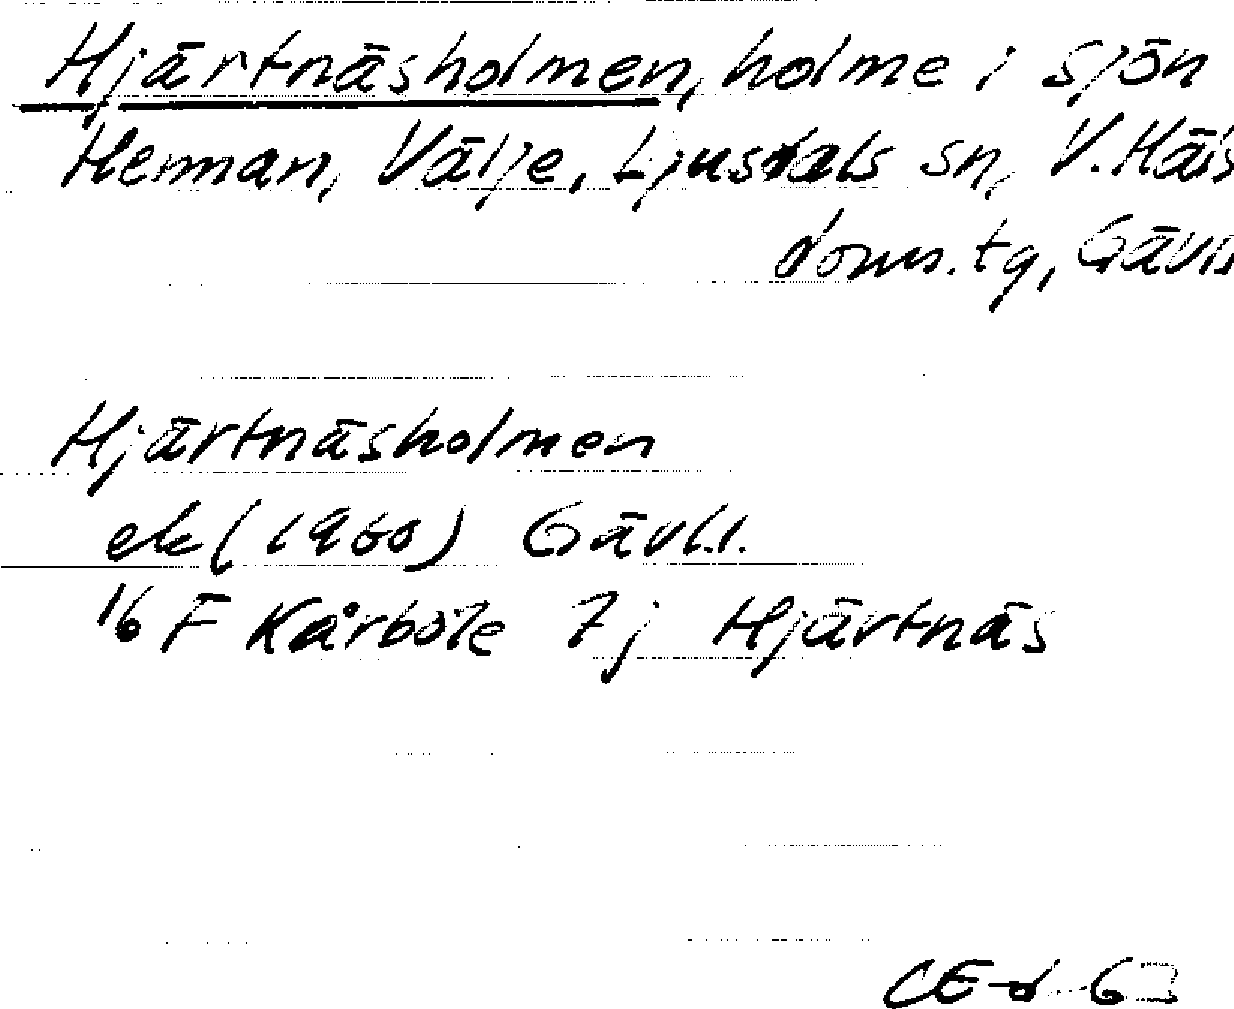 Hjärtnäsholmen, holme i sjön
Henman, Välje, Ljusdals sn, V. Häls
doms. tg, Gävls
Hjärtnäsholmen
ek (1960) Gävl.l.
16 F Kårböle 7j Hjärtnäs
CE-d 63